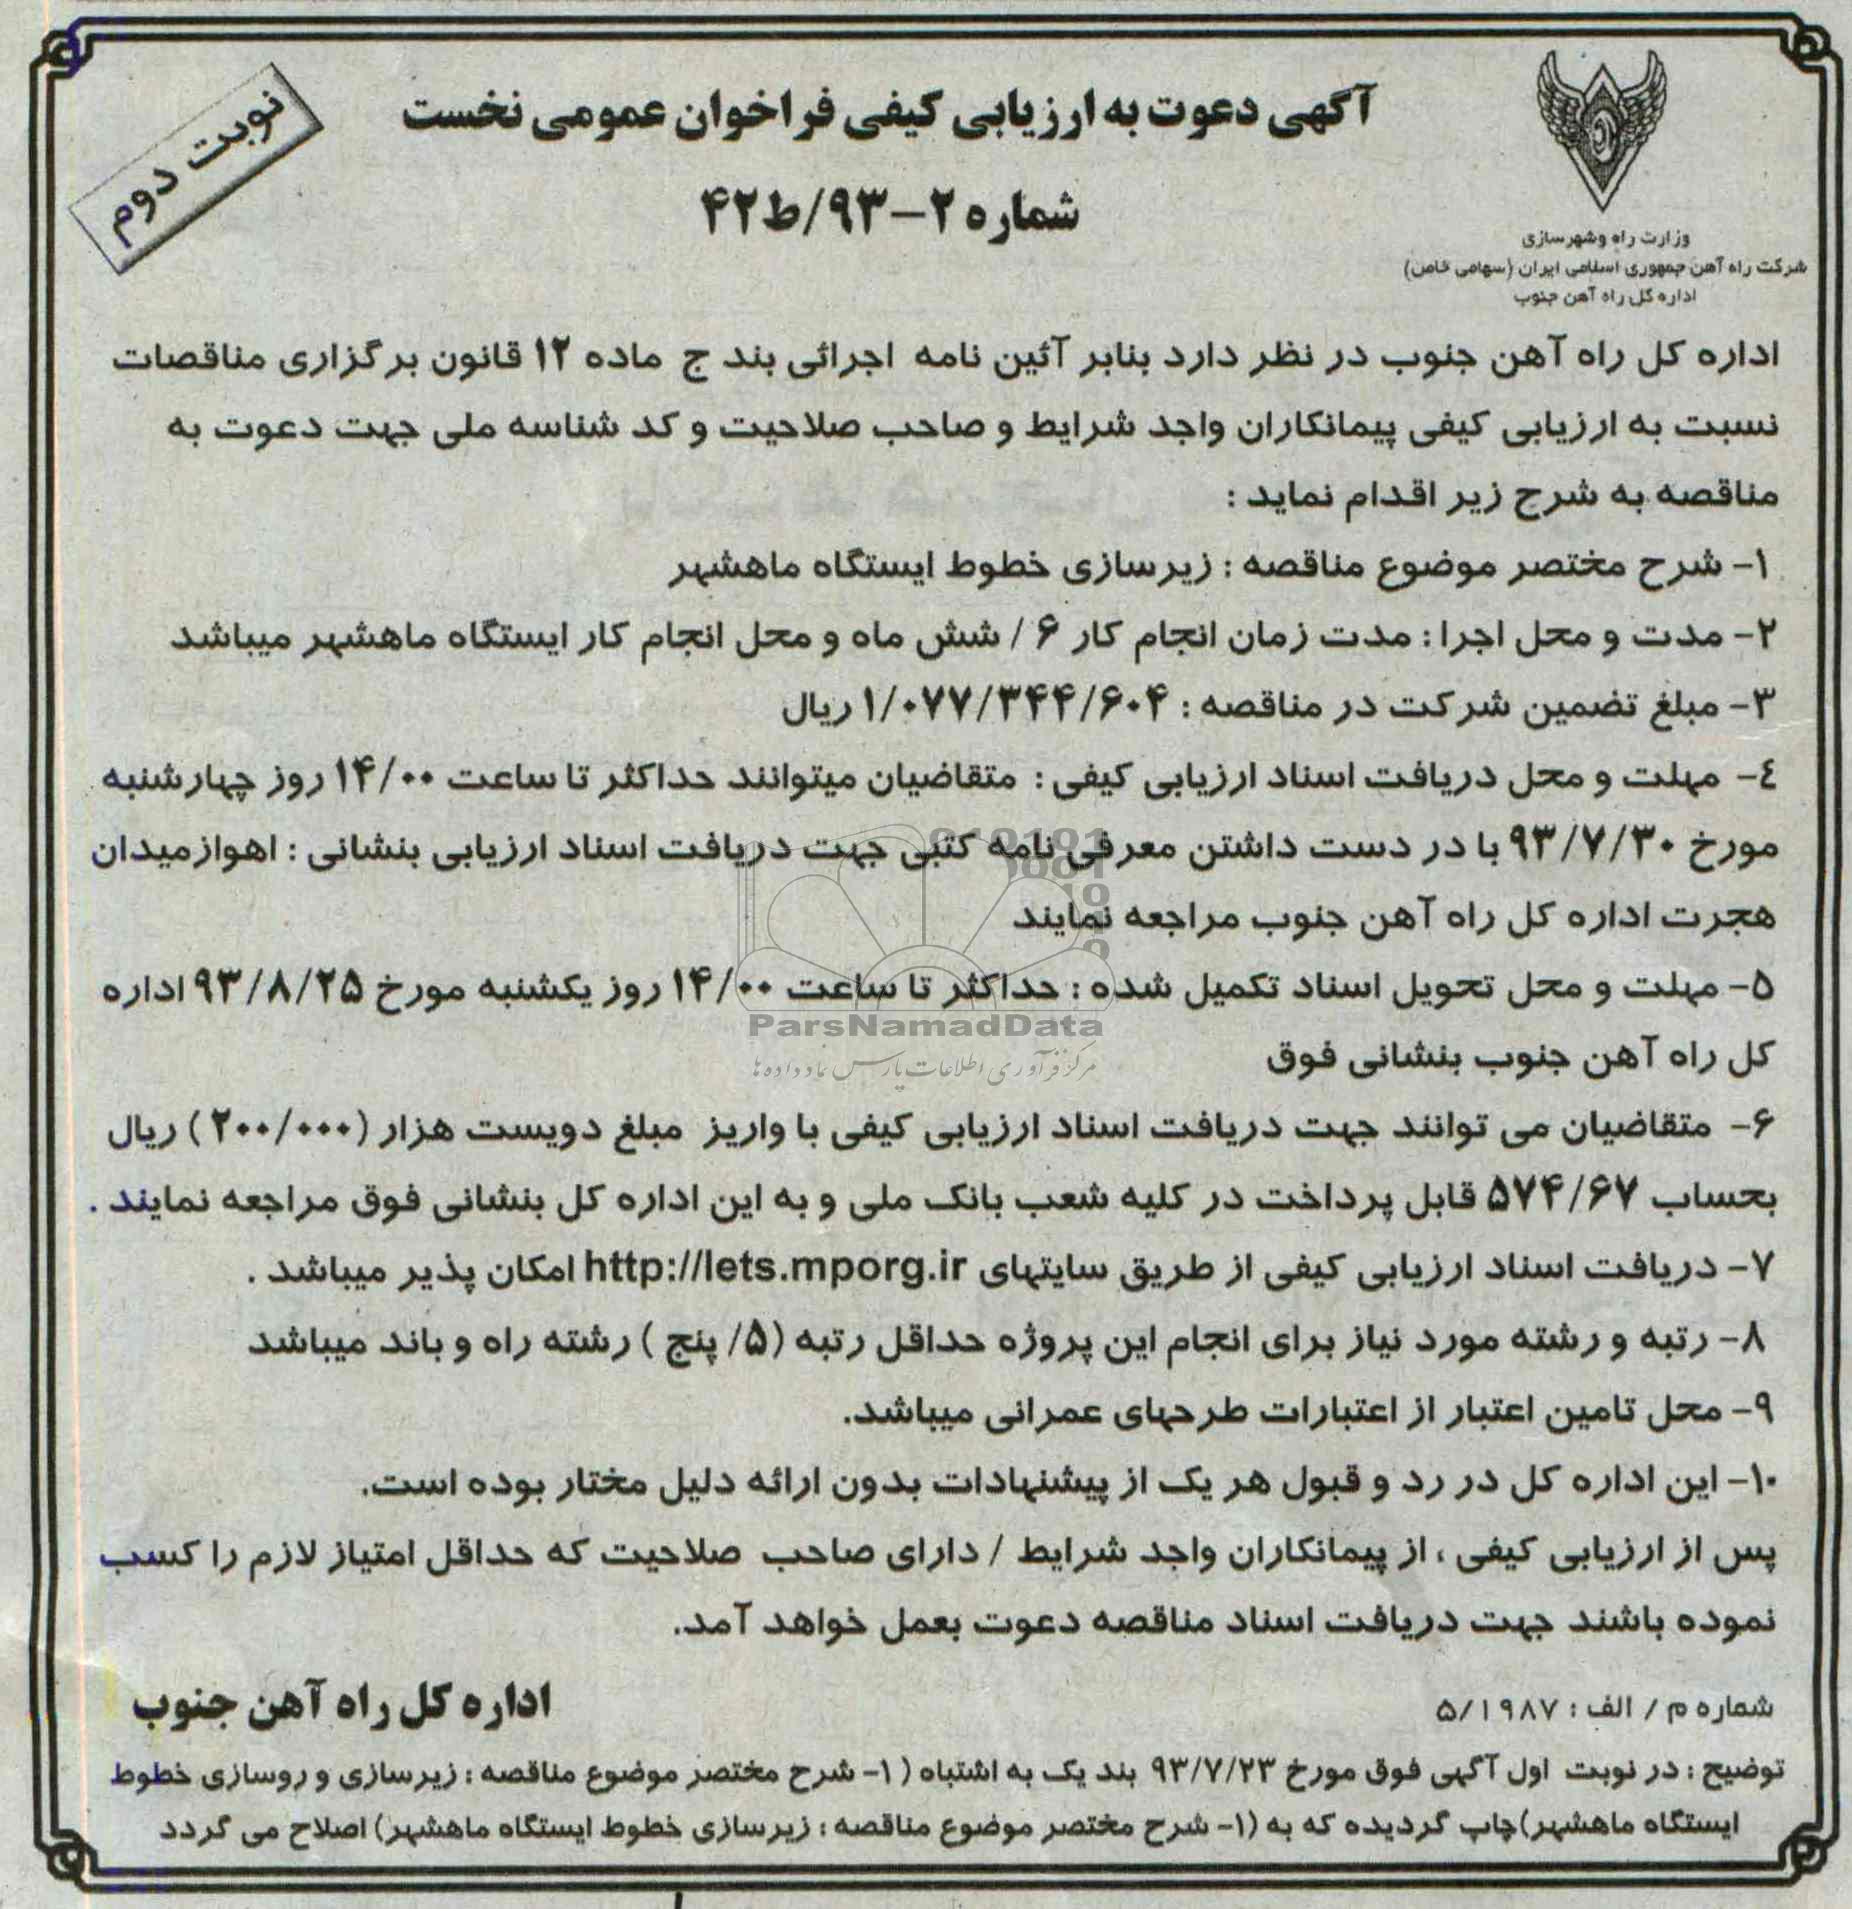 آگهی دعوت به ارزیابی کیفی فراخوان عمومی نخست
شماره ۲-۹۳/ط۴۲
نوبت دوم
وزارت راه وشهرسازی
شرکت راه آهن جمهوری اسلامی ایران (سهامی خاص)
اداره کل راه آهن جنوب
اداره کل راه آهن جنوب در نظر دارد بنابر آئین نامه اجرائی بند ج ماده ۱۲ قانون برگزاری مناقصات
نسبت به ارزیابی کیفی پیمانکاران واجد شرایط و صاحب صلاحیت و کد شناسه ملی جهت دعوت به
مناقصه به شرح زیر اقدام نماید :
۱- شرح مختصر موضوع مناقصه : زیرسازی خطوط ایستگاه ماهشهر
۲- مدت و محل اجرا : مدت زمان انجام کار ۶ / شش ماه و محل انجام کار ایستگاه ماهشهر میباشد
۳- مبلغ تضمین شرکت در مناقصه : ۱/۰۷۷/۳۴۴/۶۰۴ ریال
٤- مهلت و محل دریافت اسناد ارزیابی کیفی : متقاضیان میتوانند حداکثر تا ساعت ۱۴/۰۰ روز چهارشنبه
مورخ ۹۳/۷/۳۰ با در دست داشتن معرفی نامه کتبی جهت دریافت اسناد ارزیابی بنشانی : اهوازمیدان
هجرت اداره کل راه آهن جنوب مراجعه نمایند
۵- مهلت و محل تحویل اسناد تکمیل شده : حداکثر تا ساعت ۱۴/۰۰ روز یکشنبه مورخ ۹۳/۸/۲۵ اداره
ParsNamadData
کل راه آهن جنوب بنشانی فوق
مرکز فرآوری اطلاعات پارس نماد داده ها
۶- متقاضیان می توانند جهت دریافت اسناد ارزیابی کیفی با واریز مبلغ دویست هزار (۲۰۰/۰۰۰) ریال
بحساب ۵۷۴/۶۷ قابل پرداخت در کلیه شعب بانک ملی و به این اداره کل بنشانی فوق مراجعه نمایند .
۷- دریافت اسناد ارزیابی کیفی از طریق سایتهای http://iets.mporg.ir امکان پذیر میباشد .
۸- رتبه و رشته مورد نیاز برای انجام این پروژه حداقل رتبه (۵/ پنج ) رشته راه و باند میباشد
۹- محل تامین اعتبار از اعتبارات طرحهای عمرانی میباشد.
۱۰- این اداره کل در رد و قبول هر یک از پیشنهادات بدون ارائه دلیل مختار بوده است.
پس از ارزیابی کیفی ، از پیمانکاران واجد شرایط / دارای صاحب صلاحیت که حداقل امتیاز لازم را کسب
نموده باشند جهت دریافت اسناد مناقصه دعوت بعمل خواهد آمد.
شماره م / الف : ۵/۱۹۸۷
اداره کل راه آهن جنوب
توضیح : در نوبت اول آگهی فوق مورخ ۹۳/۷/۲۳ بند یک به اشتباه ( ۱- شرح مختصر موضوع مناقصه : زیرسازی و روسازی خطوط
ایستگاه ماهشهر)چاپ گردیده که به (۱- شرح مختصر موضوع مناقصه : زیرسازی خطوط ایستگاه ماهشهر) اصلاح می گردد